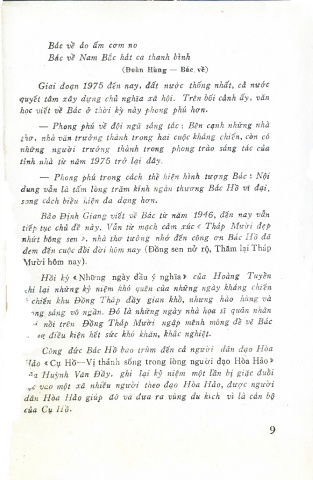 Bác về áo ấm cơm no
Bác về Nam Bắc hát ca thanh bình
(Đoàn Hàng — Bác về)
Giai đoạn 1975 đến nay, đất nước thống nhất, cả nước
quyết tâm xây dựng chủ nghĩa xã hội. Trên bối cảnh ấy, văn
học viết về Bác ở thời kỳ này phong phú hơn.
— Phong phú về đội ngũ sáng tác: Bên cạnh những nhà
thơ, nhà văn trưởng thành trong hai cuộc kháng chiến, còn có
những người trưởng thành trong phong trào sáng tác của
tỉnh nhà từ năm 1975 trở lại đây.
— Phong phú trong cách thể hiện hình tượng Bác: Nội
dung vẫn là tấm lòng trăm kính ngàn thương Bác Hồ vĩ đại,
song cách biểu hiện đa dạng hơn.
Bảo Định Giang viết về Bác từ năm 1946, đến nay vẫn
tiếp tục chủ đề này. Vẫn từ mạch cảm xúc «Tháp Mười đẹp
nhứt bông sen», nhà thơ tưởng nhớ đến công ơn Bác Hồ đã
đem đến cuộc đổi đời hôm nay (Đồng sen nở rộ, Thăm lại Tháp
Mười hôm nay).
Hồi ký «Những ngày đầu ý nghĩa» của Hoàng Tuyền
ghi lại những kỷ niệm khó quên của những ngày kháng chiến
chiến khu Đồng Tháp đầy gian khổ, nhưng hào hùng và
sáng vô ngần. Đó là những ngày nhà họa sĩ quân nhân
nổi trên Đồng Tháp Mười ngập mênh mông để vẽ Bác
điều kiện hết sức khó khăn, khắc nghiệt.
Công đức Bác Hồ bao trùm đến cả người dân đạo Hòa
Hảo «Cụ Hồ—Vị thánh sống trong lòng người đạo Hòa Hảo»
Huỳnh Văn Đầy, ghi lại kỷ niệm một lần bị giặc đuổi
vào một xã nhiều người theo đạo Hòa Hảo, được người
dân Hòa Hảo giúp đỡ và đưa ra vùng du kích vì là cán bộ
của Cụ Hồ.
9